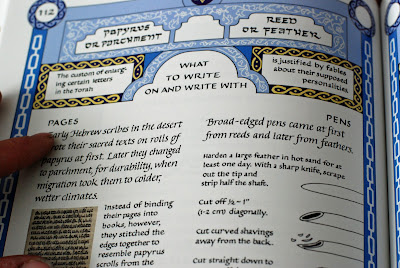 112
PAPYRUS
OR PARCHMENT
REED
OR FEATHER
WHAT
TO WRITE
ON AND WRITE WITH
The custom of enlarg-
ing certain letters
in the Torah
is justified by fables
about their supposed
personalities
PAGES
Early Hebrew scribes in the desert
wrote their sacred texts on rolls of
papyrus at first. Later they changed
to parchment, for durability, when
migration took them to colder,
wetter climates.
Instead of binding
their pages into
books, however,
they stitched the
edges together to
resemble papyrus
scrolls from the
PENS
Broad-edged pens came at first
from reeds and later from feathers.
Harden a large feather in hot sand for at
least one day. With a sharp knife, scrape
out the tip and
strip half the shaft.
Cut off ½ – 1"
(1-2 cm) diagonally.
Cut curved shavings
away from the back.
Cut straight down to